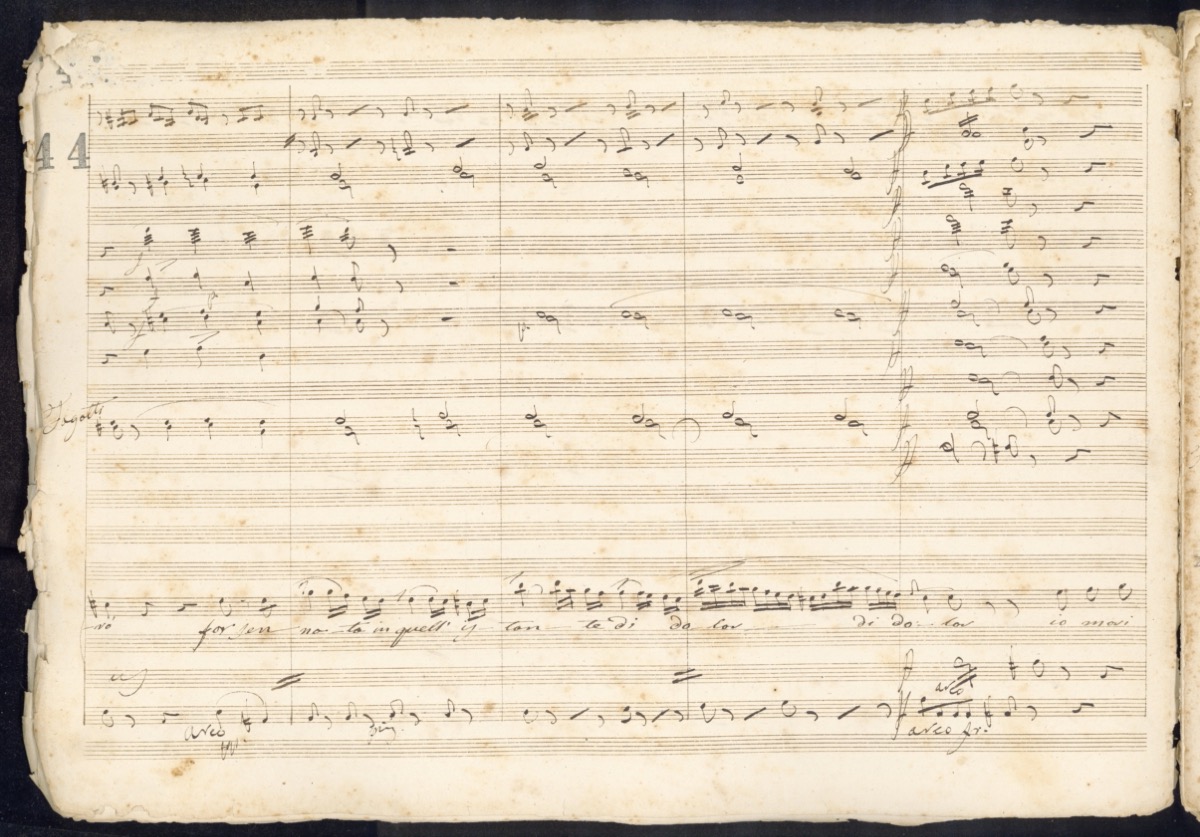 44
Fagotti
rò for sen na ta in quell' is tan te di do lor di do lor io mori
arco
arco
arco